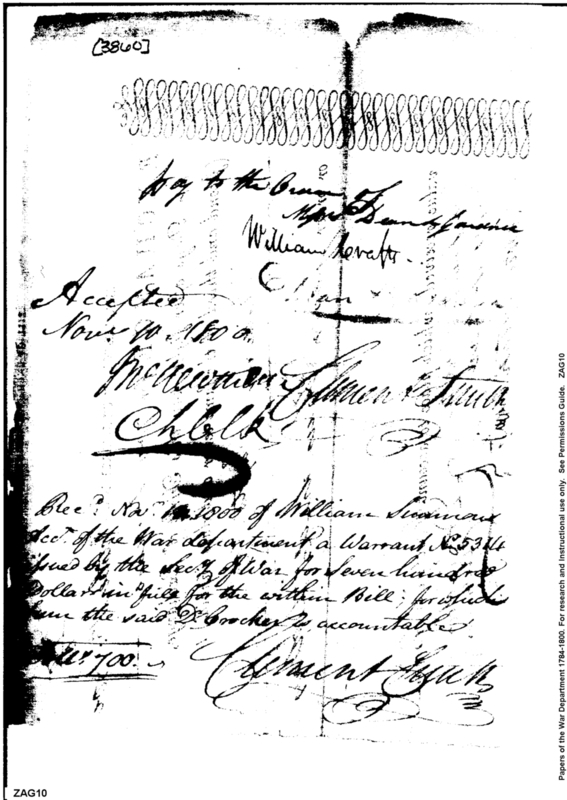 [3860]
Pay to the Order of
Messrs Dean & Gardner
William Lovett
Accepted
Novr 10. 1800.
Ch Clk
Clement Smith
Recd. Novr 10 1800 of William Simmons
Acct. of the War department a Warrant No 5314
issued by the Secy of War for Seven hundred
Dollars in full for the within Bill; for which
sum the said D. Crocker is accountable
700
Clement Smith
Papers of the War Department 1784-1800. For research and instructional use only. See Permissions Guide. ZAG10
ZAG10